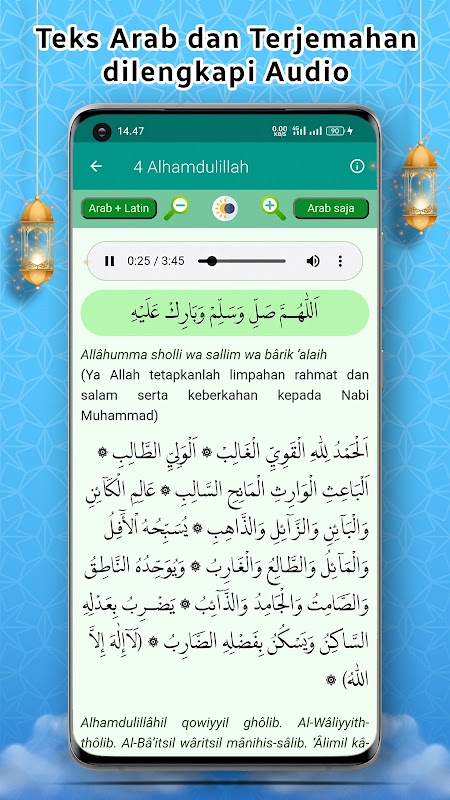 Teks Arab dan Terjemahan
dilengkapi Audio
14.47
0.00 KB/S 4G 90
4 Alhamdulillah
Arab + Latin
Arab saja
0:25 / 3:45
اَللّٰهُمَّ صَلِّ وَسَلِّمْ وَبَارِكْ عَلَيْهِ
Allâhumma sholli wa sallim wa bârik ‘alaih
(Ya Allah tetapkanlah limpahan rahmat dan
salam serta keberkahan kepada Nabi
Muhammad)
اَلْحَمْدُ لِلّٰهِ الْقَوِيِّ الْغَالِبْ ۞ اَلْوَلِيِّ الطَّالِبِ ۞
اَلْبَاعِثِ الْوَارِثِ الْمَانِحِ السَّالِبِ ۞ عَالِمِ الْكَآئِنِ
وَالْبَآئِنِ وَالزَّآئِلِ وَالذَّاهِبِ ۞ يُسَبِّحُهُ اْلآفِلُ
وَالْمَآئِلُ وَالطَّالِعُ وَالْغَارِبُ ۞ وَيُوَحِّدُهُ النَّاطِقُ
وَالصَّامِتُ وَالْجَامِدُ وَالذَّآئِبُ ۞ يَضْرِبُ بِعَدْلِهِ
السَّاكِنُ وَيَسْكُنُ بِفَضْلِهِ الضَّارِبُ ۞ (لَآاِلٰهَ اِلاَّ
اللهُ) ۞
Alhamdulillâhil qowiyyil ghôlib. Al-Wâliyyith-
thôlib. Al-Bâ‘itsil wâritsil mânihis-sâlib. ‘Âlimil kâ-